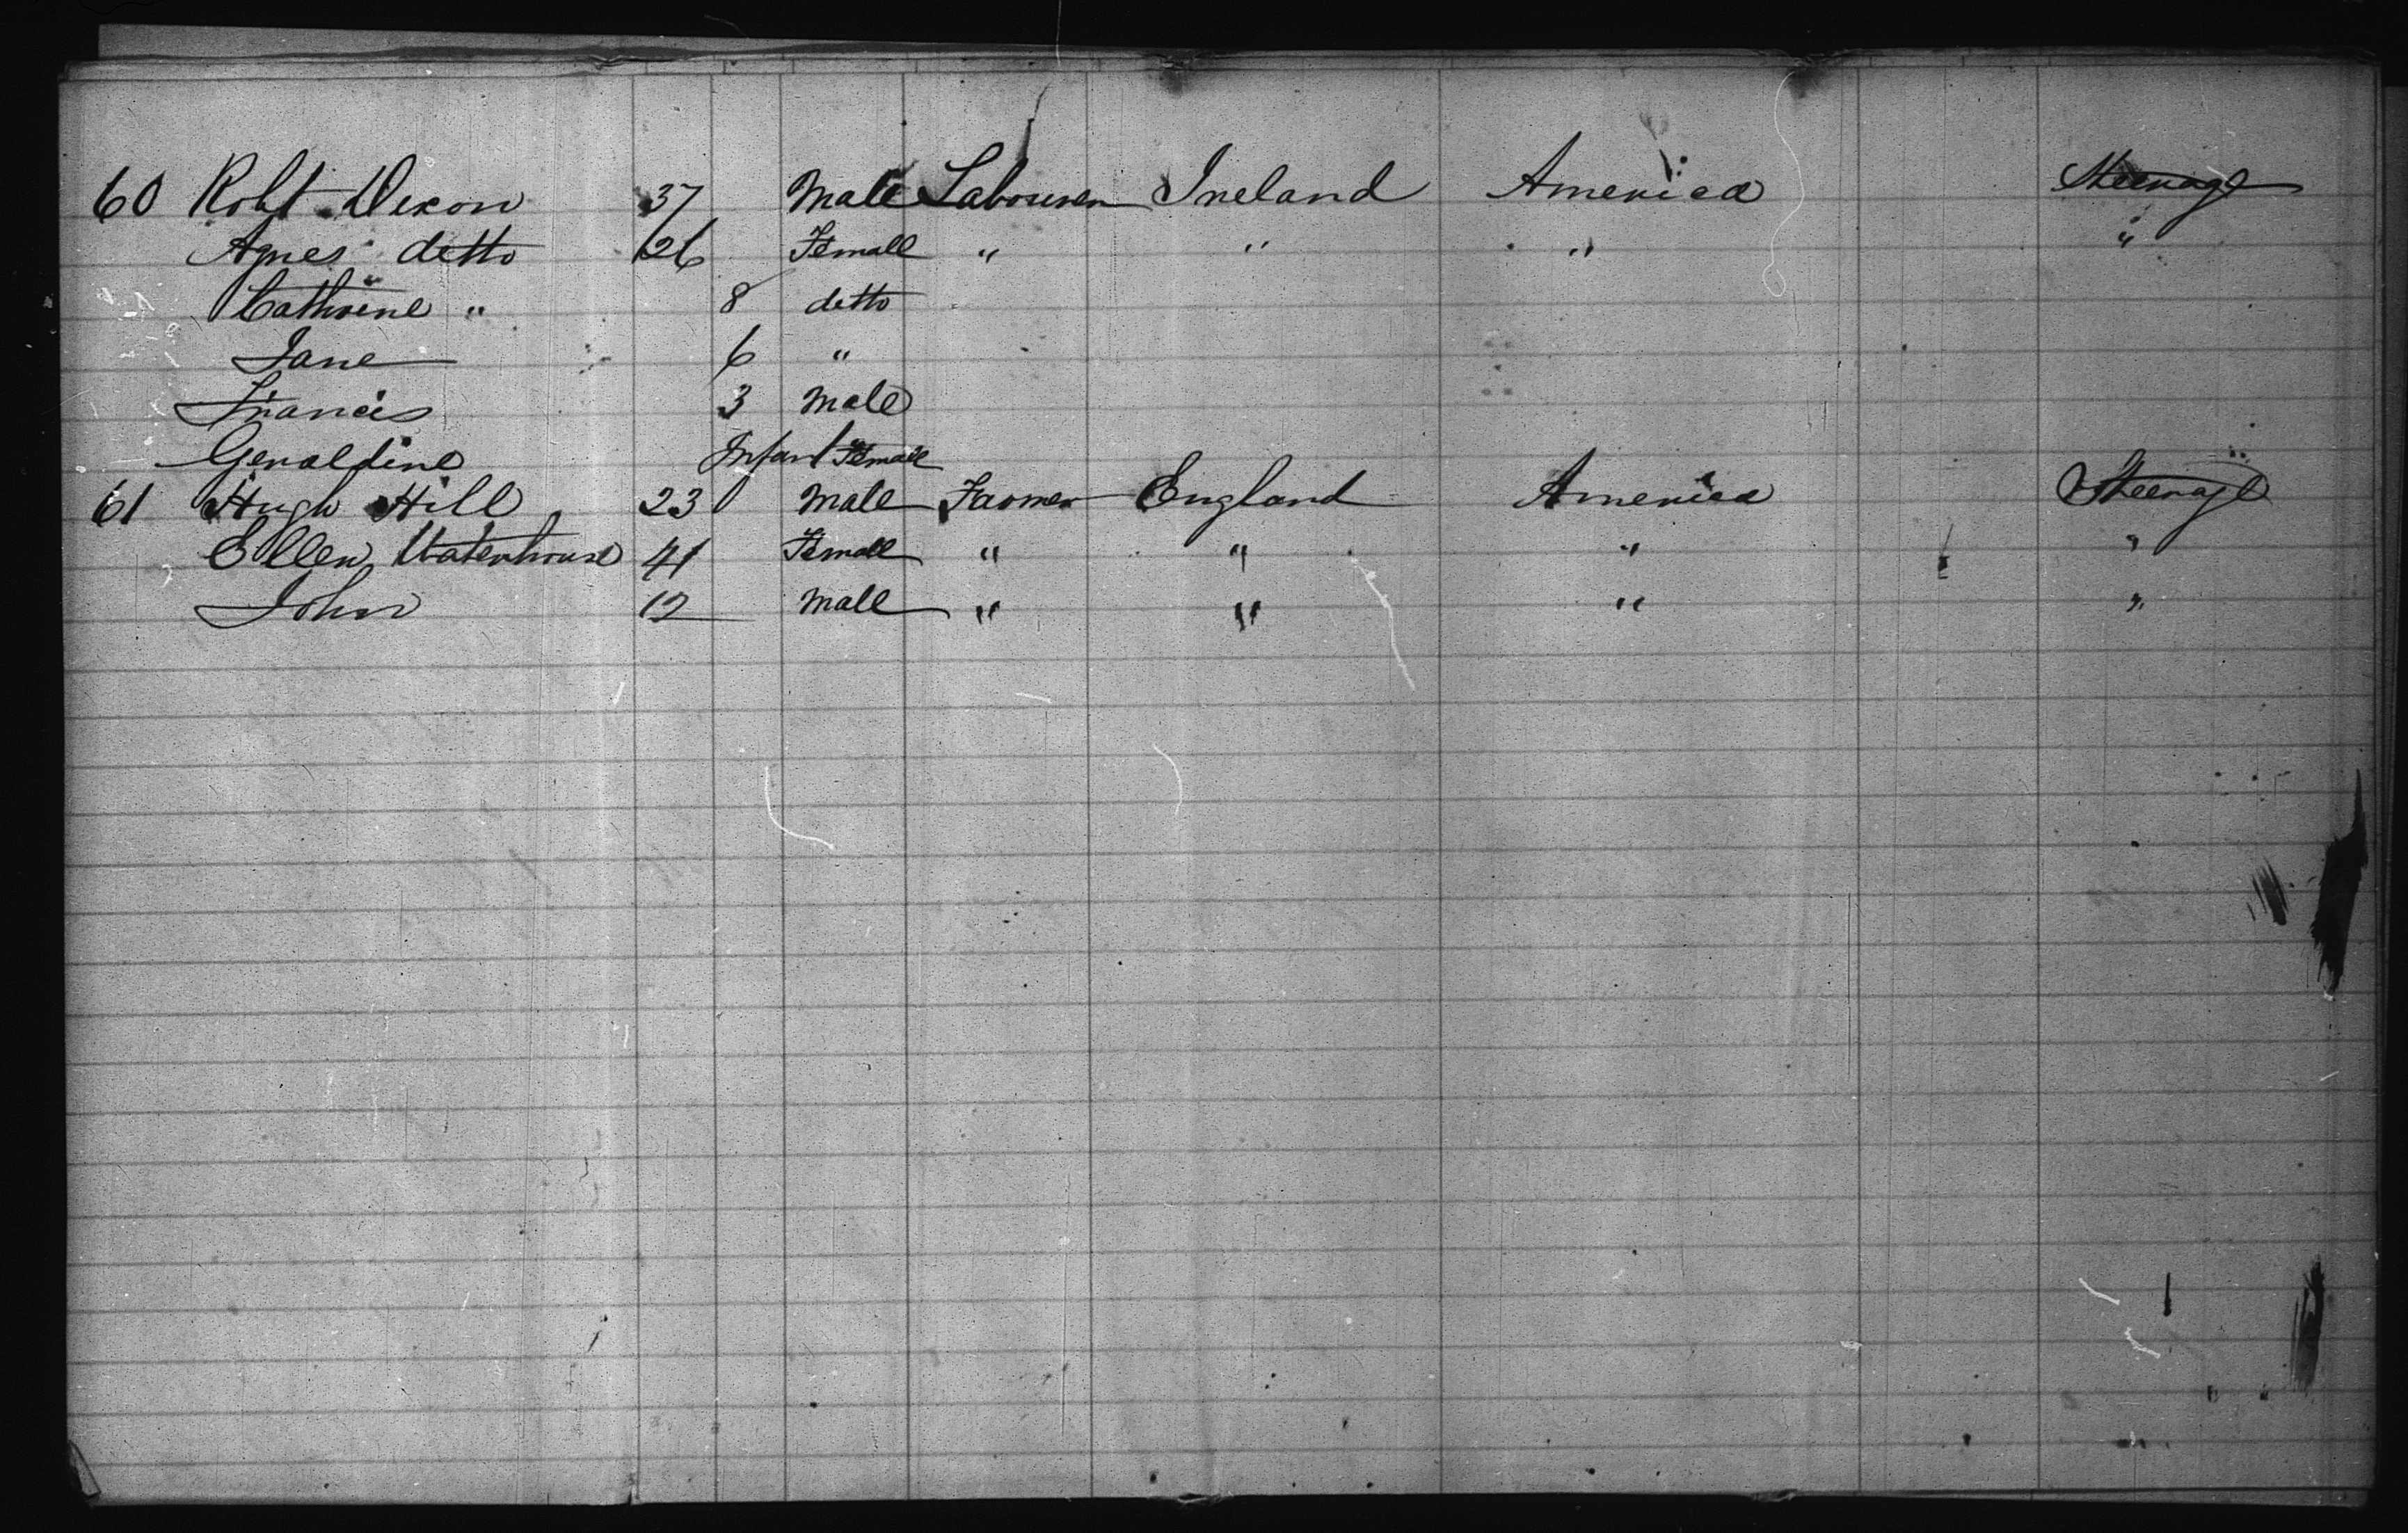 60 Robt Dixon 37 Male Labourer Ireland America Steerage
Agnes ditto 26 Female " " " "
Cathrine " 8 ditto
Jane 6 "
Francis 3 Male
Geraldine Infant Female
61 Hugh Hill 23 Male Farmer England America Steerage
Ellen Waterhouse 41 Female " " " "
John 12 Male " " " "